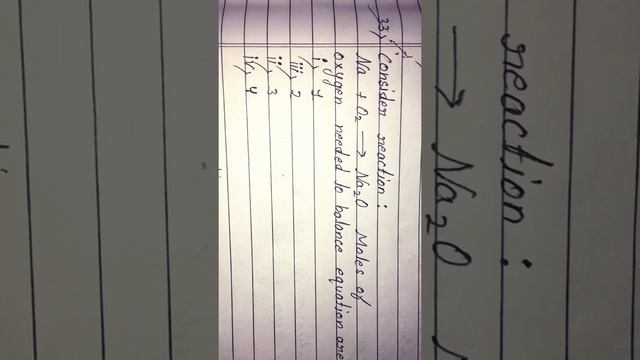 33) Consider reaction:
Na + O₂ → Na₂O Moles of
oxygen needed to balance equation are
i, 1
iii, 2
ii, 3
iv, 4
reaction:
→ Na₂O